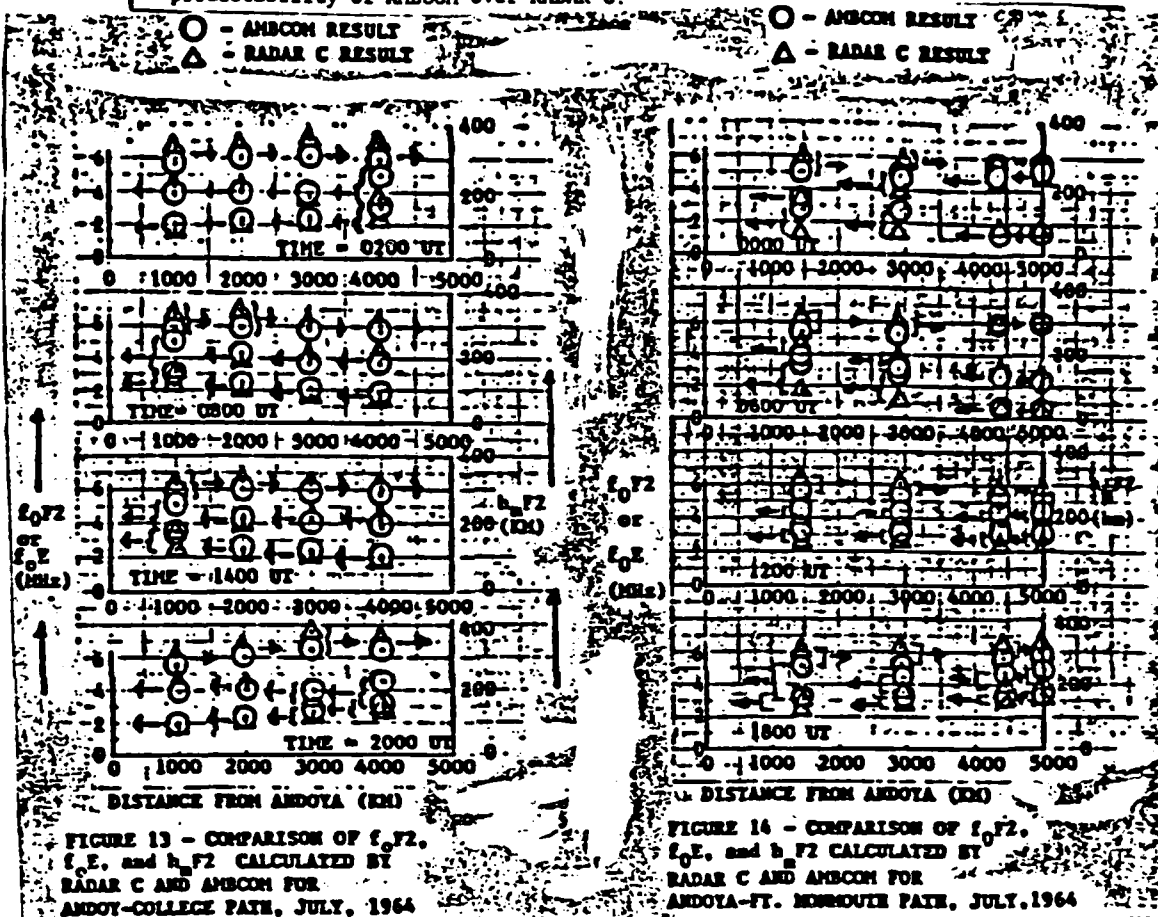 of AMBCOM over RADAR C.
O - AMBCOM RESULT
△ - RADAR C RESULT
400
6
4
200
2
TIME = 0200 UT
0
0
0 1000 2000 3000 4000 5000
400
6
4
200
2
TIME = 0800 UT
0
0
0 1000 2000 3000 4000 5000
400
6
4
200
2
TIME = 1400 UT
0
0
0 1000 2000 3000 4000 5000
400
6
4
200
2
TIME = 2000 UT
0
0
0 1000 2000 3000 4000 5000
f₀F2
or
f₀E
(MHz)
hₘF2
(KM)
DISTANCE FROM ANDOYA (KM)
FIGURE 13 - COMPARISON OF f₀F2,
f₀E, and hₘF2 CALCULATED BY
RADAR C AND AMBCOM FOR
ANDOY-COLLEGE PATH, JULY, 1964
O - AMBCOM RESULT
△ - RADAR C RESULT
400
200
0000 UT
0 1000 2000 3000 4000 5000
400
200
0600 UT
0 1000 2000 3000 4000 5000
400
200 (km)
1200 UT
0 1000 2000 3000 4000 5000
400
200
1800 UT
0
0 1000 2000 3000 4000 5000
f₀F2
or
f₀E
(MHz)
DISTANCE FROM ANDOYA (KM)
FIGURE 14 - COMPARISON OF f₀F2,
f₀E, and hₘF2 CALCULATED BY
RADAR C AND AMBCOM FOR
ANDOYA-FT. MONMOUTH PATH, JULY,1964